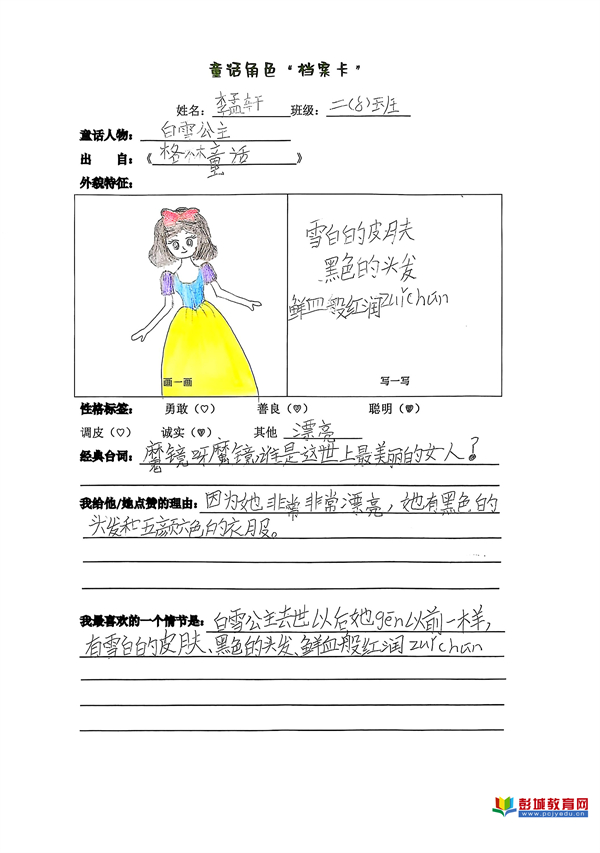 童话角色“档案卡”
姓名：李孟轩 班级：二（8）班
童话人物：白雪公主
出 自：《格林童话》
外貌特征：
雪白的皮肤
黑色的头发
鲜血般红润zuǐchún
画一画 写一写
性格标签： 勇敢（♡） 善良（♥） 聪明（♥）
调皮（♡） 诚实（♥） 其他 漂亮
经典台词：魔镜呀魔镜谁是这世上最美丽的女人？
我给他/她点赞的理由：因为她非常非常漂亮，她有黑色的
头发和五颜六色的衣服。
我最喜欢的一个情节是：白雪公主去世以后她gēn以前一样，
有雪白的皮肤、黑色的头发、鲜血般红润zuǐchún
彭城教育网
www.pcjyedu.cn